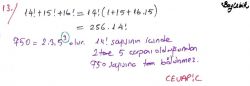 13.)
14!+15!+16! = 14!(1+15+16.15)
= 256.14!
750 = 2.3.5³ olur. 14! sayısının içinde
2 tane 5 çarpanı olduğundan
750 sayısına tam bölünmez.
CEVAP: C